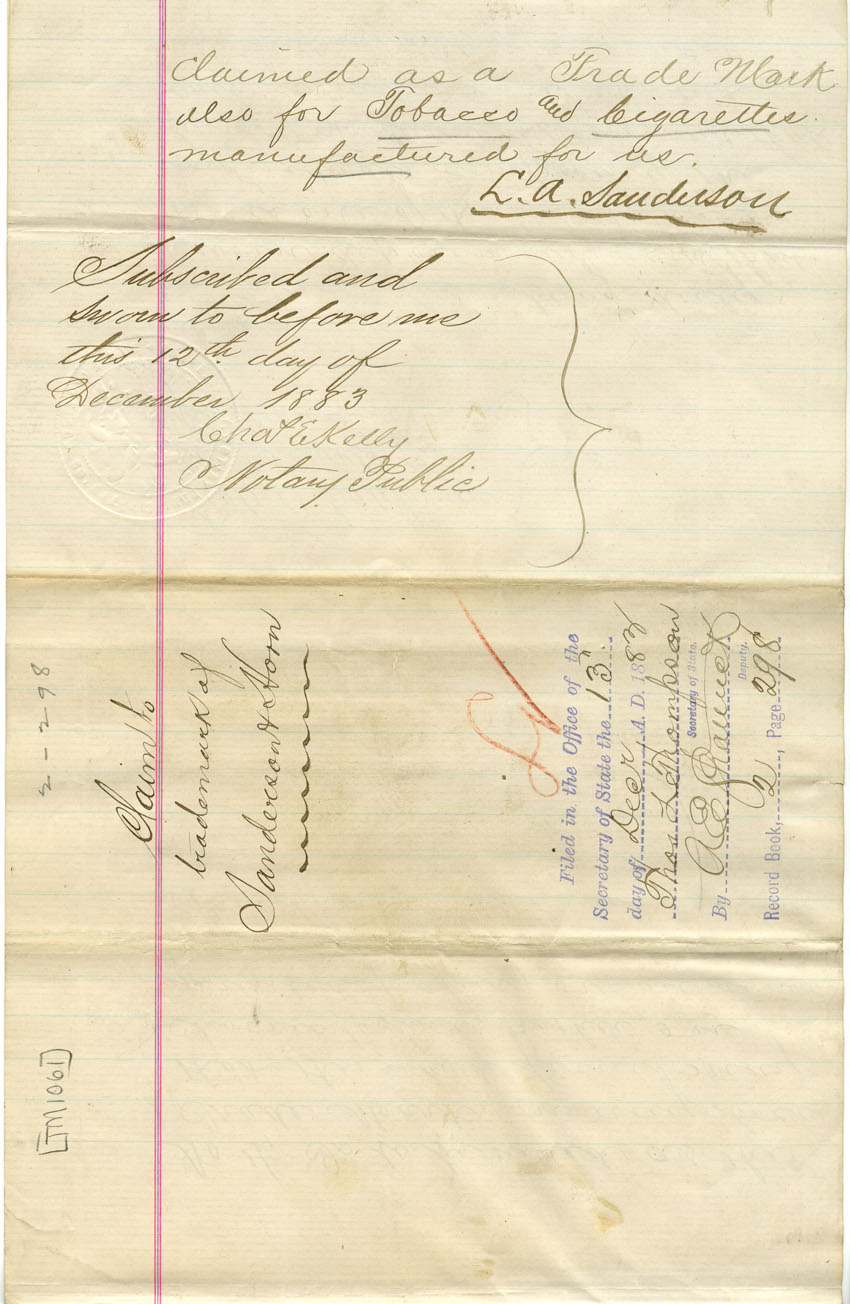 Claimed as a Trade Mark
also for Tobacco and Cigarettes.
manufactured for us.
L. A. Sanderson
Subscribed and
sworn to before me
this 12th day of
December 1883
Chas E Kelly
Notary Public
2-298
Claim to
trademark of
Sanderson & Horn
Filed in the Office of the
Secretary of State the 13"
day of Decr A. D. 1883
Thos L Thompson
Secretary of State.
By A E
Deputy.
Record Book, 2, Page 298
TM1061